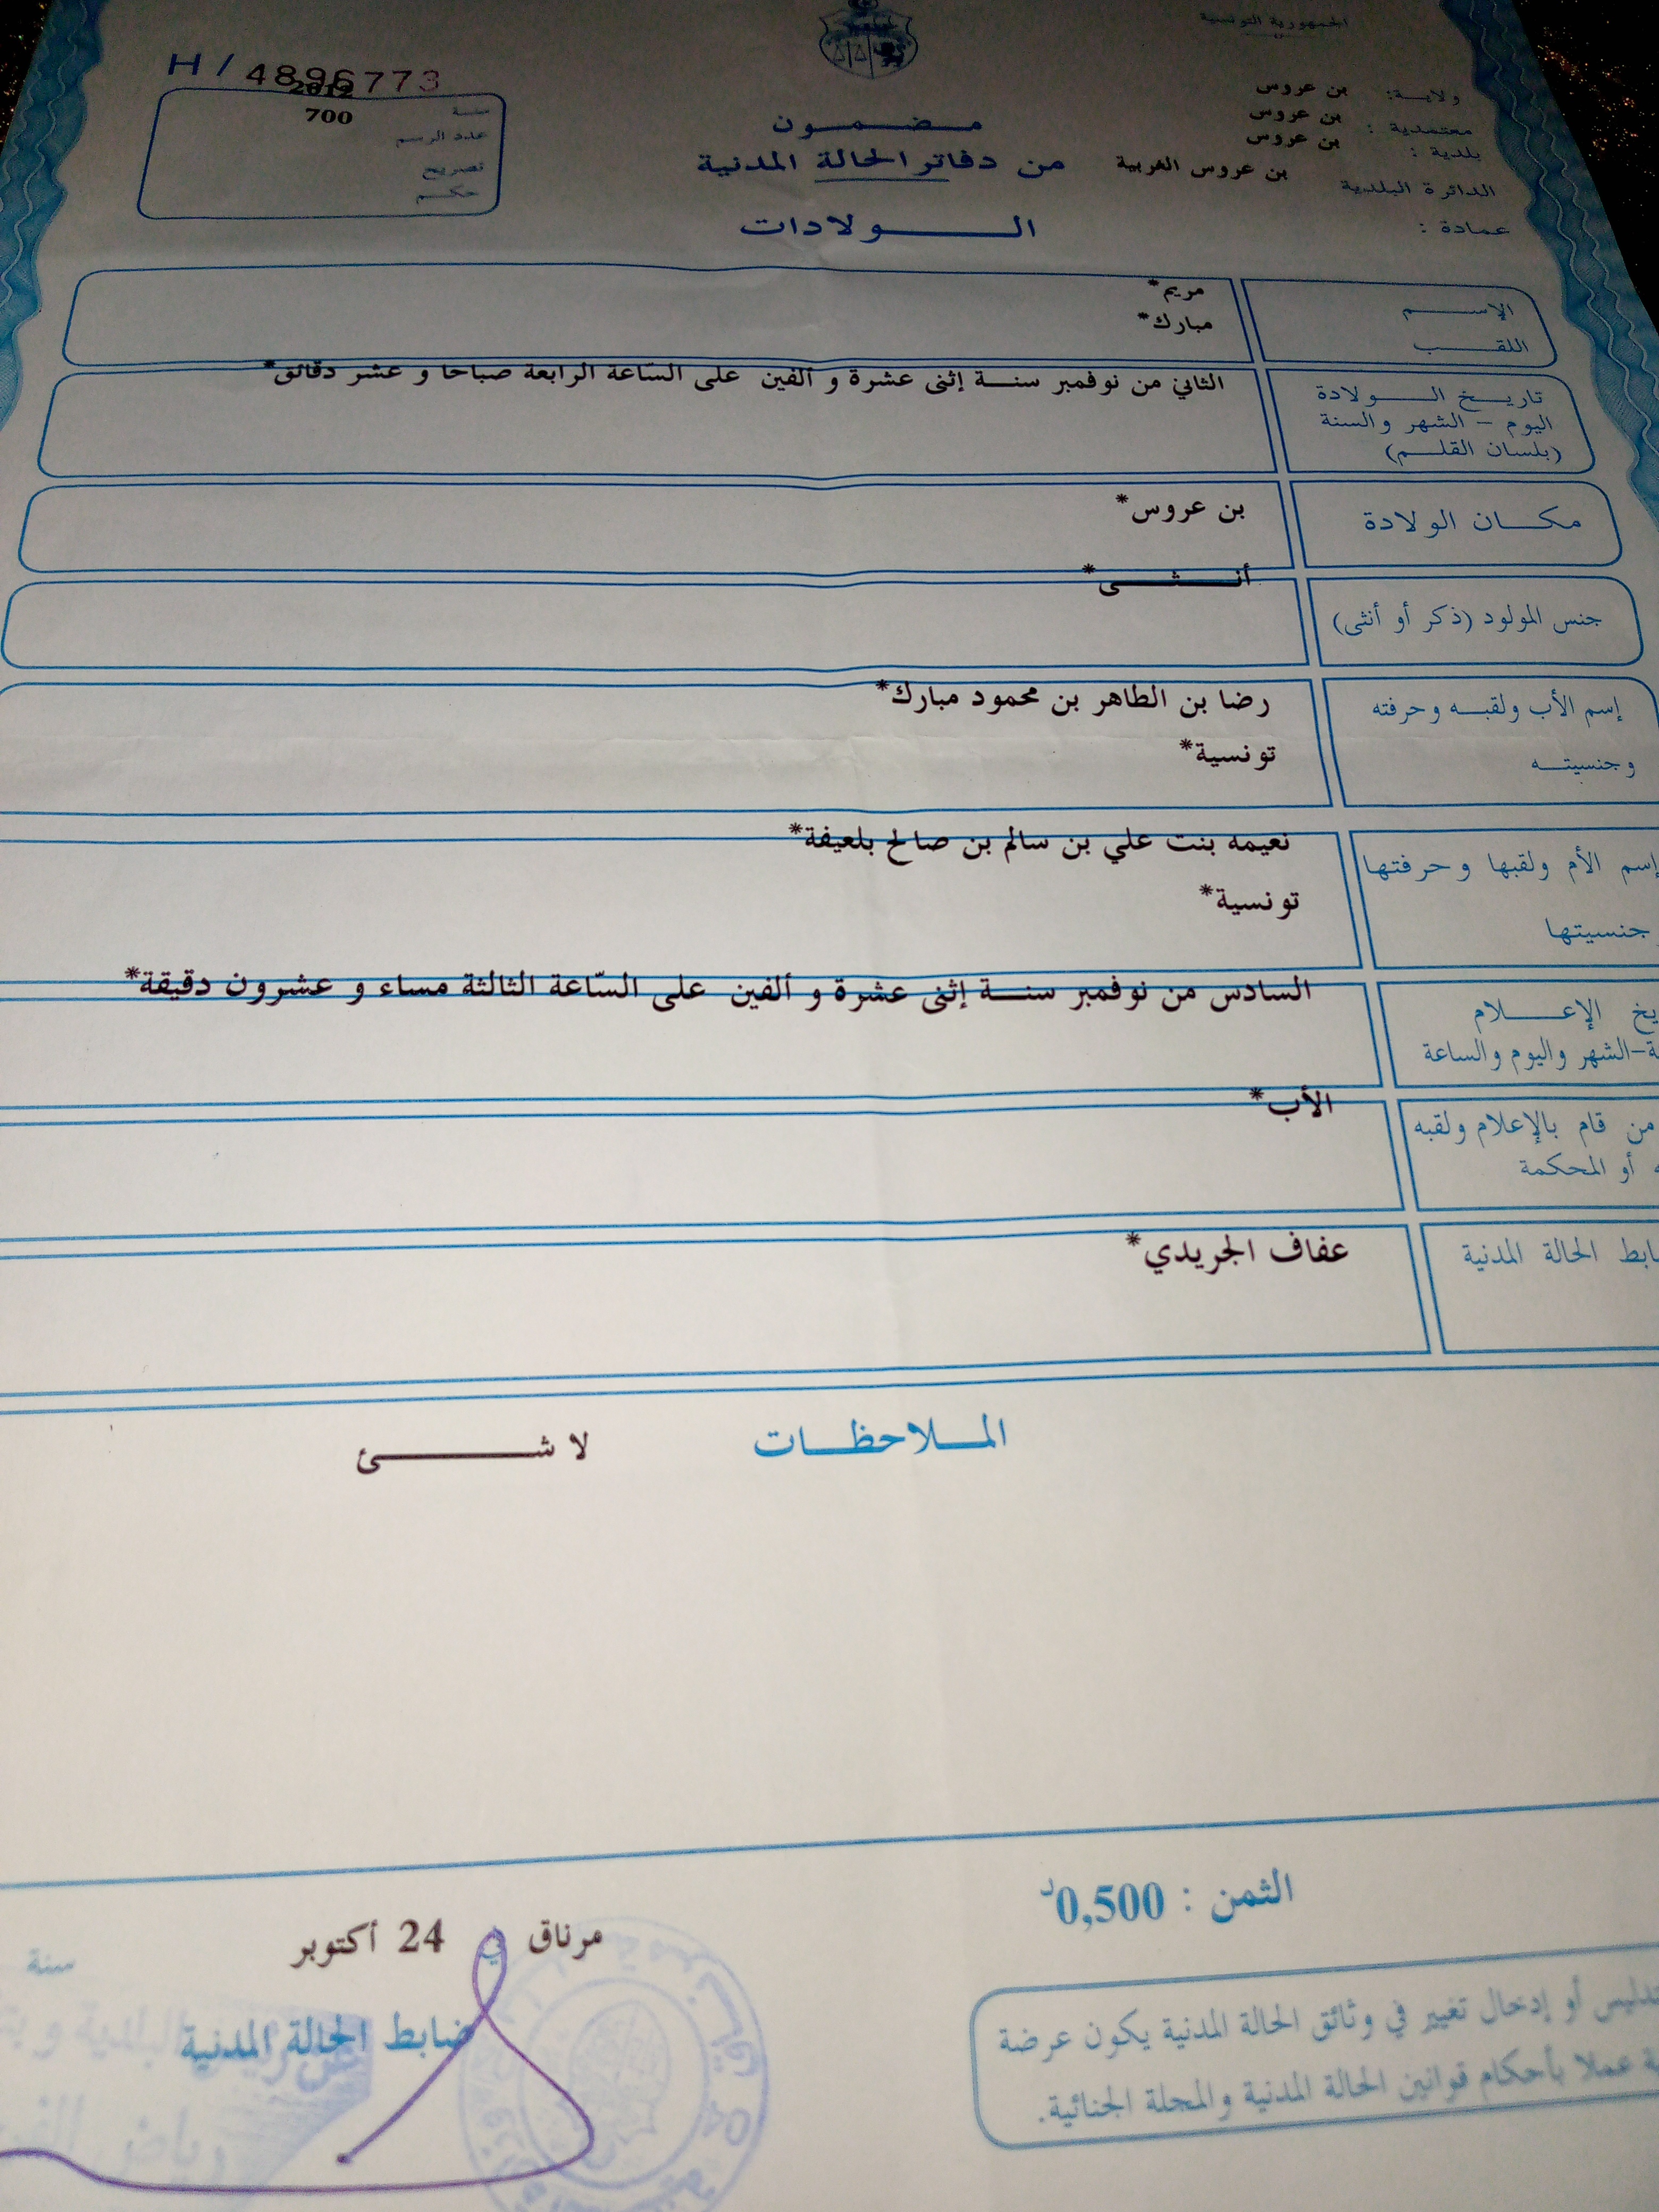 الجمهورية التونسية
ولايـــة: بن عروس
معتمدية : بن عروس
بلدية : بن عروس
الدائرة البلدية بن عروس الغربية
عمادة :
H / 4896773
سنة 2012
عدد الرسم 700
تصريح
حكم
مضمون
من دفاتر الحالة المدنية
الولادات
الإسم مريم*
اللقب مبارك*
تاريخ الولادة
اليوم - الشهر والسنة
(بلسان القلم)
الثاني من نوفمبر سنة إثنى عشرة و ألفين على الساعة الرابعة صباحا و عشر دقائق*
مكان الولادة بن عروس*
جنس المولود (ذكر أو أنثى) أنثى*
إسم الأب ولقبه وحرفته رضا بن الطاهر بن محمود مبارك*
وجنسيته تونسية*
إسم الأم ولقبها وحرفتها نعيمه بنت علي بن سالم بن صالح بلعيفة*
جنسيتها تونسية*
يخ الإعلام
ة-الشهر واليوم والساعة
السادس من نوفمبر سنة إثنى عشرة و ألفين على السّاعة الثالثة مساء و عشرون دقيقة*
من قام بالإعلام ولقبه الأب*
أو المحكمة
ابط الحالة المدنية عفاف الجريدي*
الملاحظات لا شئ
الثمن : 0,500د
مرناق في 24 أكتوبر
سنة
ضابط الحالة المدنية
تدليس أو إدخال تغيير في وثائق الحالة المدنية يكون عرضة
ية عملا بأحكام قوانين الحالة المدنية والمجلة الجنائية.